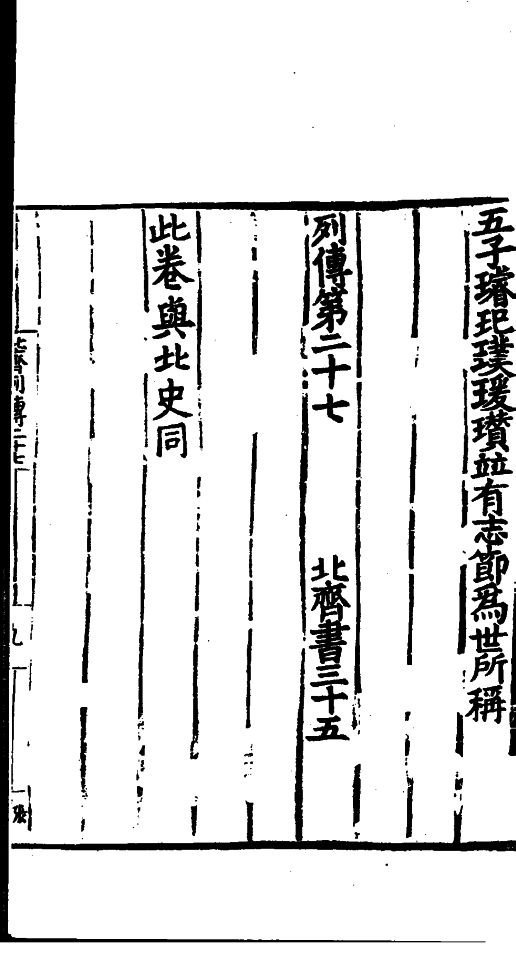 五子璿玘璞瑗瓚竝有志節爲世所稱
列傳第二十七　北齊書三十五
此卷與北史同
北齊列傳二十七　九